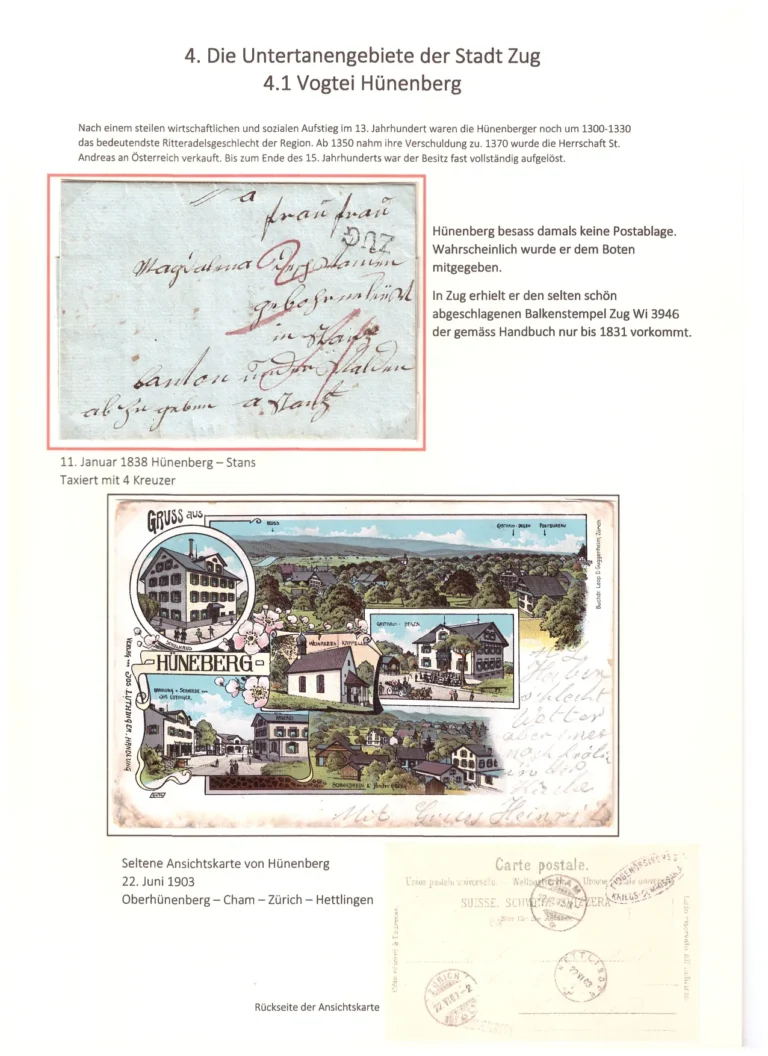 4. Die Untertanengebiete der Stadt Zug
4.1 Vogtei Hünenberg
Nach einem steilen wirtschaftlichen und sozialen Aufstieg im 13. Jahrhundert waren die Hünenberger noch um 1300-1330
das bedeutendste Ritteradelsgeschlecht der Region. Ab 1350 nahm ihre Verschuldung zu. 1370 wurde die Herrschaft St.
Andreas an Österreich verkauft. Bis zum Ende des 15. Jahrhunderts war der Besitz fast vollständig aufgelöst.
a
frau frau
ZUG
Magdalena
in Stanz
canton under Walden
ab zu geben a Stanz
Hünenberg besass damals keine Postablage.
Wahrscheinlich wurde er dem Boten
mitgegeben.
In Zug erhielt er den selten schön
abgeschlagenen Balkenstempel Zug Wi 3946
der gemäss Handbuch nur bis 1831 vorkommt.
11. Januar 1838 Hünenberg – Stans
Taxiert mit 4 Kreuzer
GRUSS aus
GASTHAUS DEGEN POSTBUREAU
Buchdr. Leop. D. Guggenheim, Zürich
GASTHAUS DEGEN
WEINREBEN KAPPELLE
HÜNEBERG
HANDLUNG & SCHMIEDE von
JOS. LUTHIGER.
VERLAG von JOS. LUTHIGER, HANDLUNG
schlecht
Wetter
aber imer
noch fröli
in der
Mit Gruss Heinrich
Seltene Ansichtskarte von Hünenberg
22. Juni 1903
Oberhünenberg – Cham – Zürich – Hettlingen
Carte postale.
Union postale universelle. Weltpostverein. Unione postale universale
SUISSE. SCHWEIZ. SVIZZERA
CHAM
HETTLINGEN
22.VI.03
ZÜRICH
22.VI.03
Rückseite der Ansichtskarte